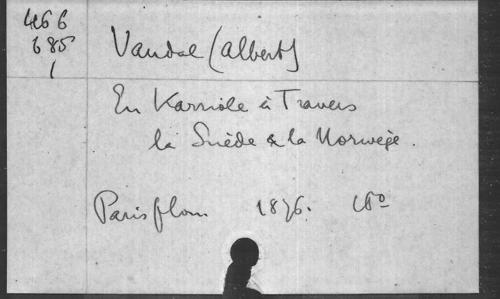 466
685
1
Vandal (Albert)
En Karriole à Travers
la Suède & la Norwège.
Paris Plon 1876. 16º